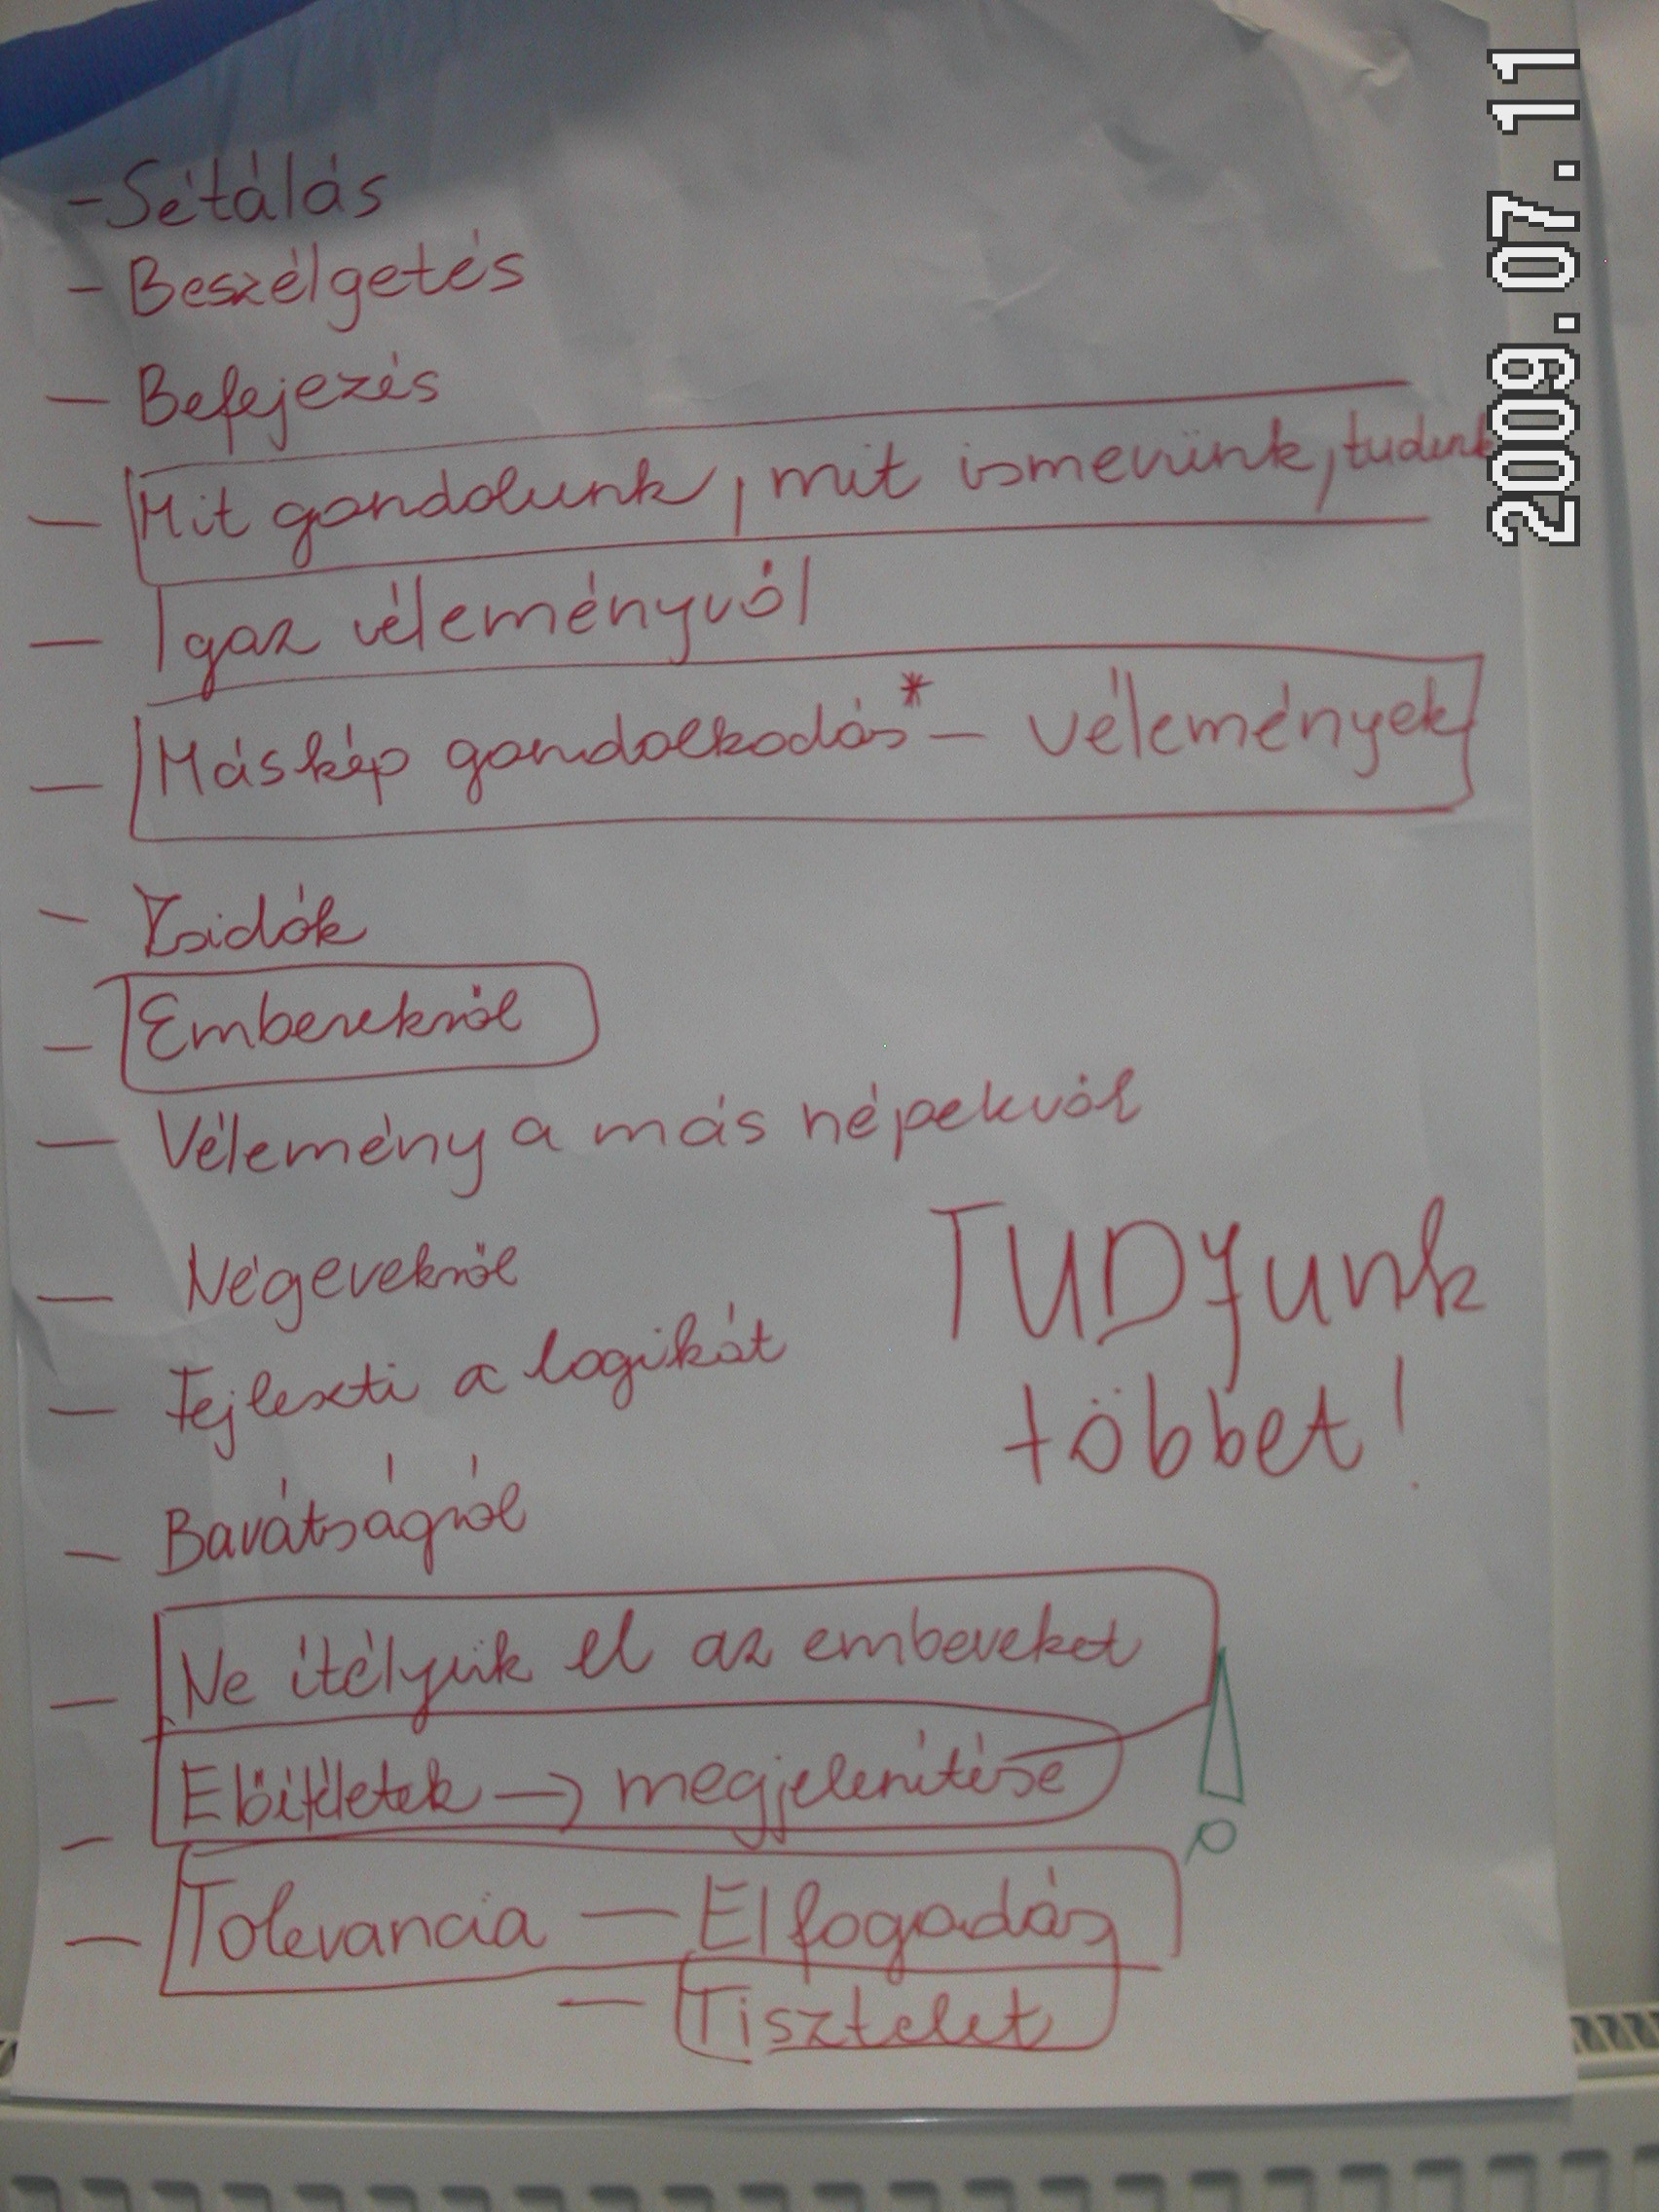 - Sétálás
- Beszélgetés
- Befejezés
- Mit gondolunk, mit ismerünk, tudunk
- Igaz véleményről
- Máskép gondolkodás* - vélemények
- Zsidók
- Emberekről
- Vélemény a más népekről
- Négerekről
- Fejleszti a logikát
TUDJunk
többet!
- Barátságról
- Ne ítéljük el az embereket
- Előítéletek → megjelenítése
- Tolerancia - Elfogadás
- Tisztelet
2009.07.11